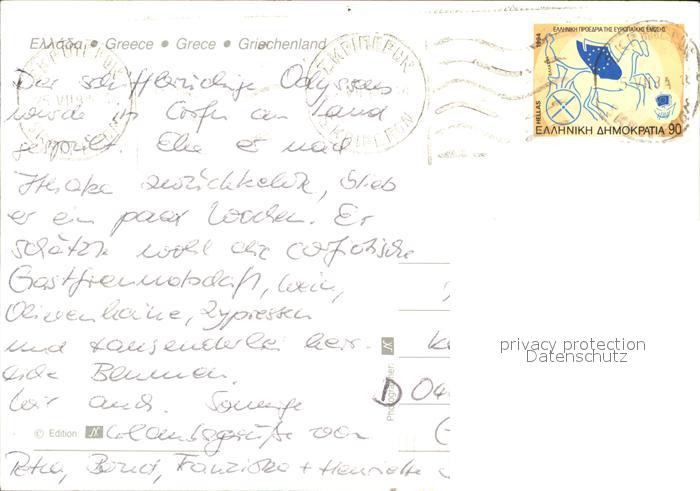 Ελλάδα • Greece • Grece • Griechenland
Der schiffbrüchige Odysseus
wurde in Corfu an Land
gespült. Ehe er nach
Ithaka zurückkehrte, blieb
er ein paar Wochen. Er
schätzte wohl die corfiotische
Gastfreundschaft, Wein,
Olivenhaine, Zypressen
und tausenderlei herr-
liche Blumen.
Wir auch. Sonnige
Urlaubsgrüße von
Petra, Bernd, Franziska + Henriette
© Edition:
Photographer:
D 04
ΕΛΛΗΝΙΚΗ ΠΡΟΕΔΡΙΑ ΤΗΣ ΕΥΡΩΠΑΪΚΗΣ ΕΝΩΣΗΣ
1994
HELLAS
ΕΛΛΗΝΙΚΗ ΔΗΜΟΚΡΑΤΙΑ 90
ΣΚΡΙΠΕΡΟΝ
ΣΚΡΙΠΕΡΟΝ
privacy protection
Datenschutz